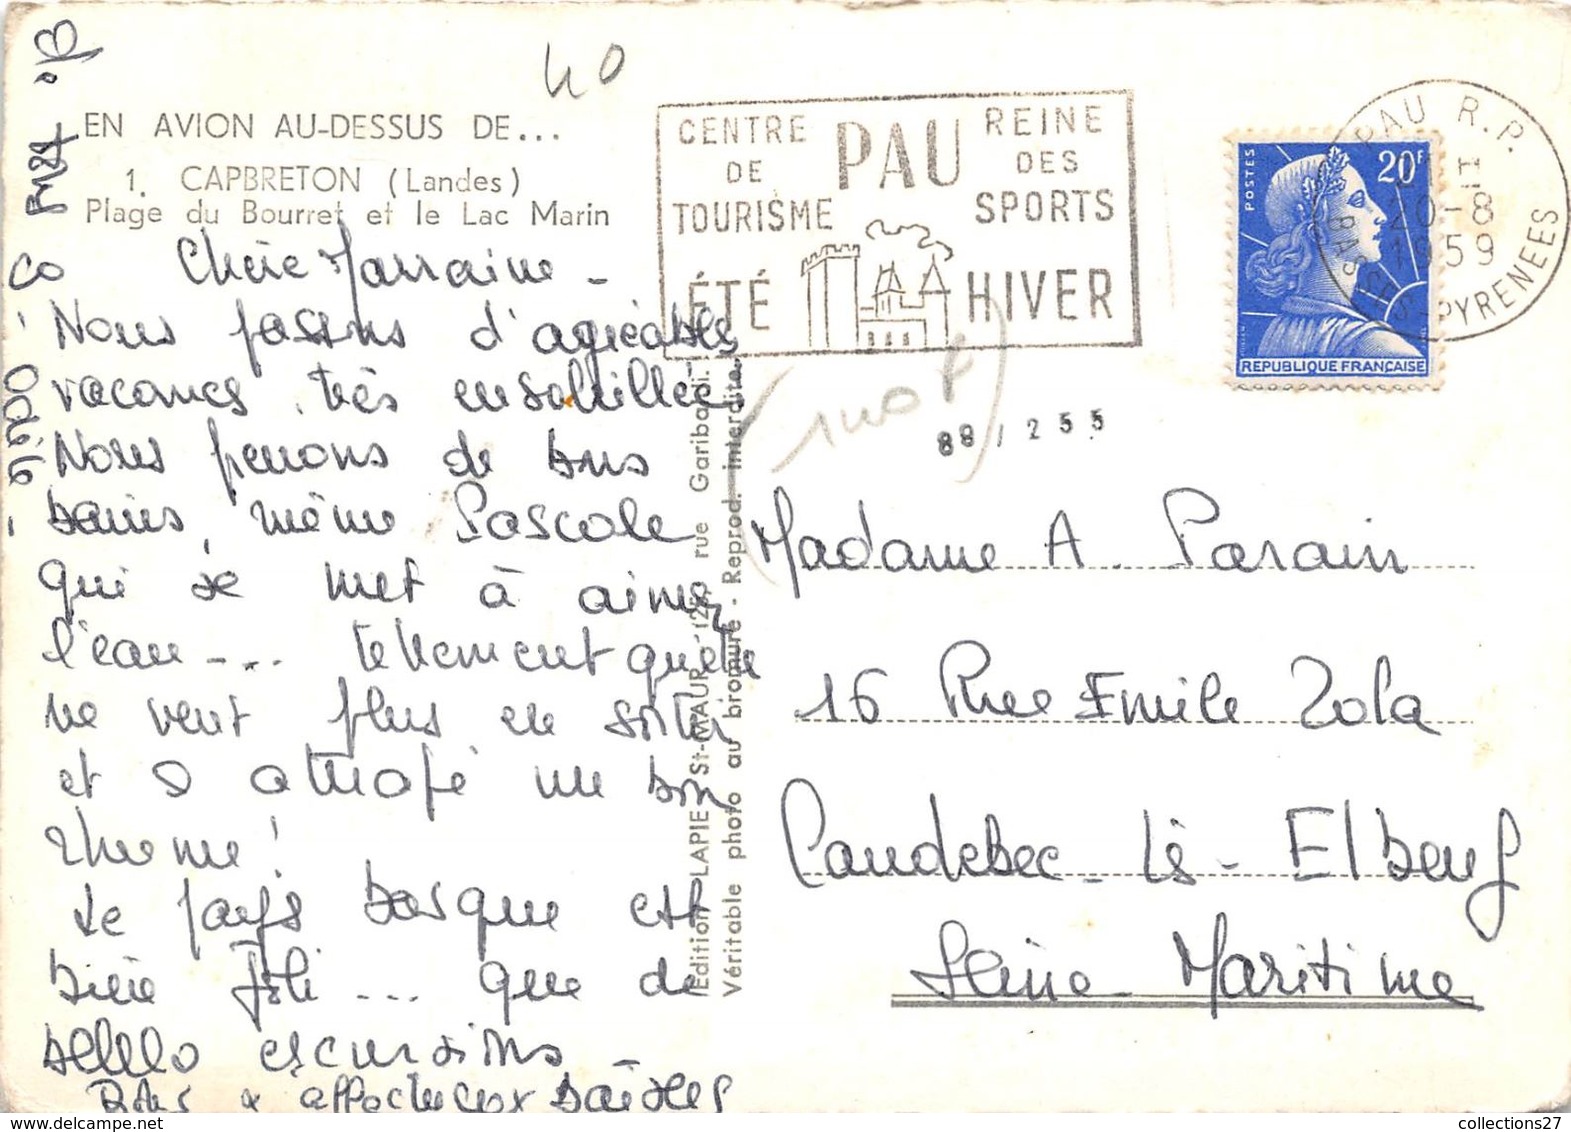 40
EN AVION AU-DESSUS DE...
1. CAPBRETON (Landes)
Plage du Bourret et le Lac Marin
Chère Marraine -
Nous passons d'agréables
vacances, très ensoleillées
Nous prenons de bons
bains, même Pascale
qui se met à aimer
l'eau -... tellement qu'elle
ne veut plus en sortir
et a attrapé un bon
rhume!
Le pays basque est
bien joli ... que de
belles excursions -
Bons & affectueux baisers
Odile
CENTRE DE TOURISME
PAU
REINE DES SPORTS
ÉTÉ
HIVER
PAU R.P.
20-8
1959
BASSES-PYRENEES
POSTES
20F
REPUBLIQUE FRANÇAISE
88,255
Edition LAPIE St-MAUR - 125, rue Garibaldi.
Véritable photo au bromure - Reprod. interdite.
Madame A. Parain
16 Rue Emile Zola
Caudebec-lès-Elbeuf
Seine Maritime
collections27